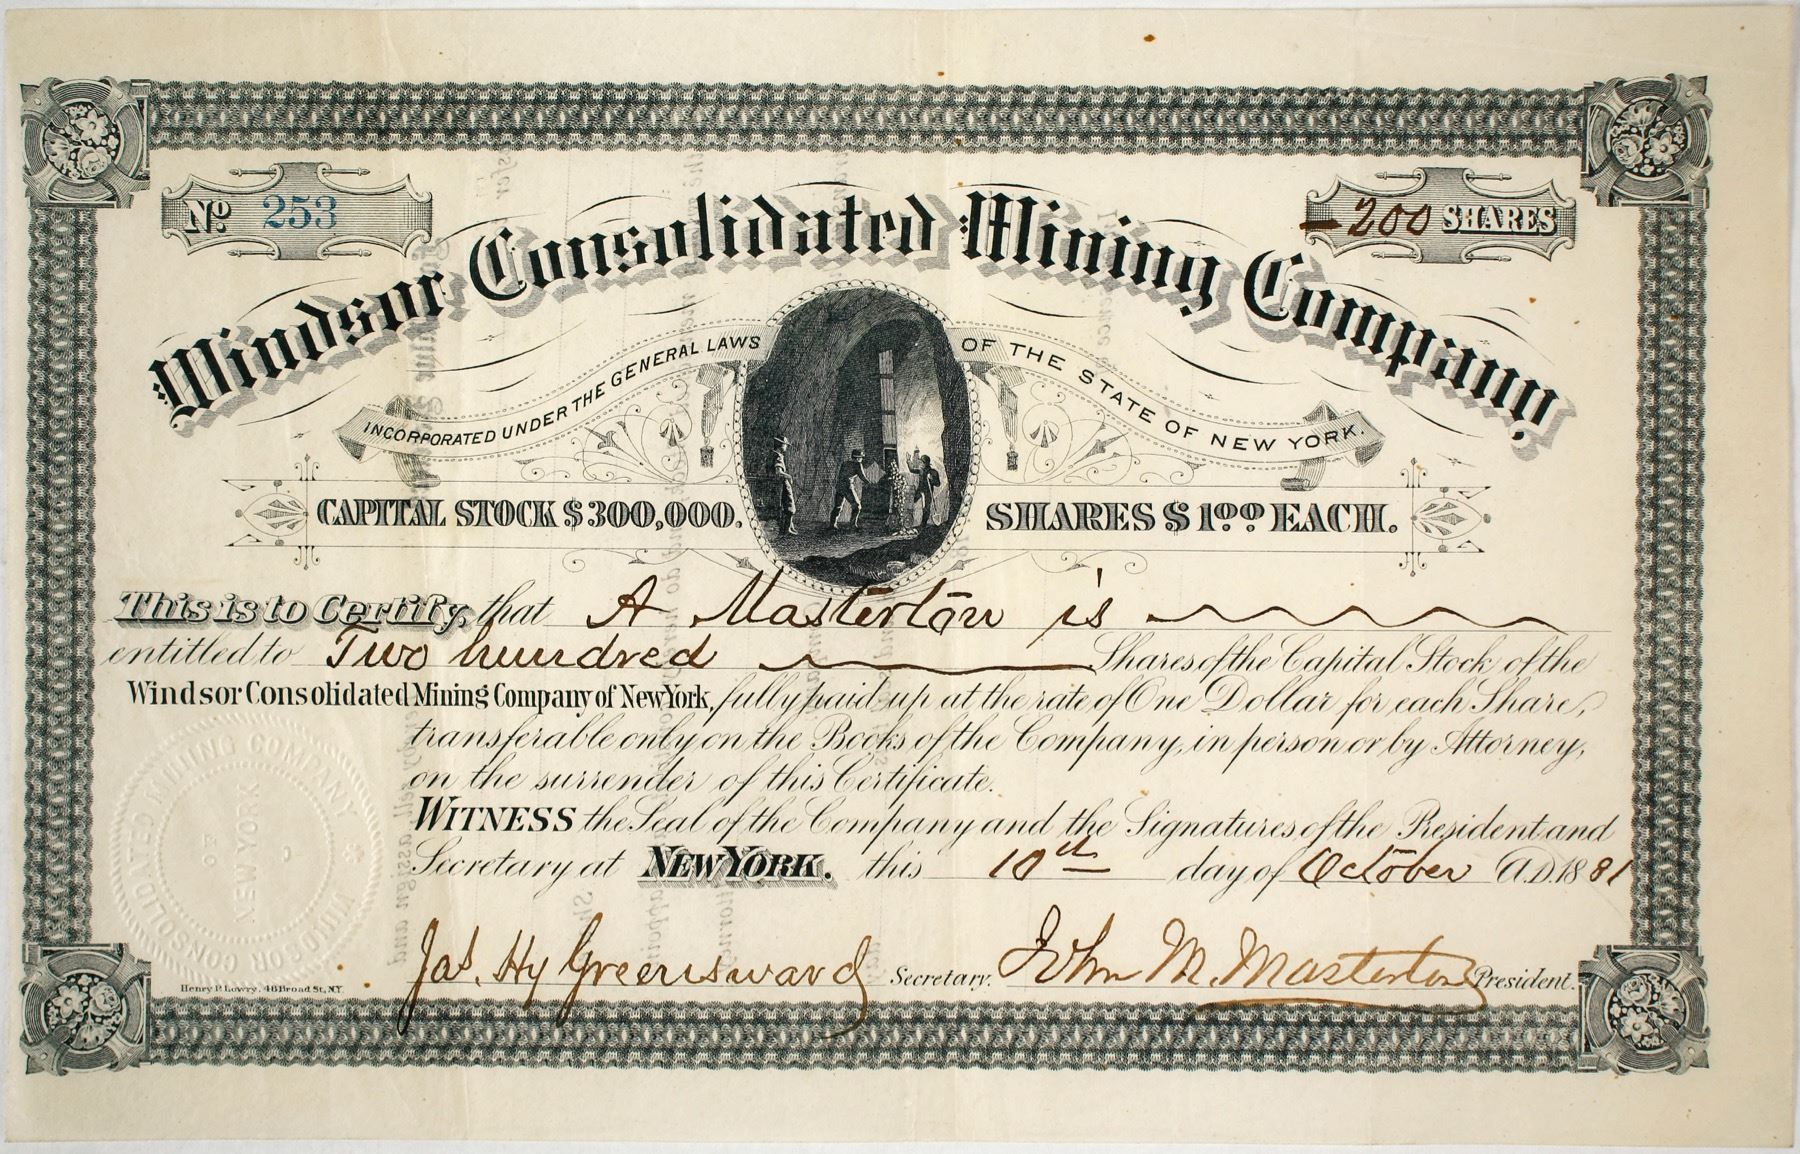 No. 253
-200 SHARES
Windsor Consolidated Mining Company,
INCORPORATED UNDER THE GENERAL LAWS OF THE STATE OF NEW YORK.
CAPITAL STOCK $300,000. SHARES $1.00 EACH.
This is to Certify, that A Masterton is
entitled to Two hundred Shares of the Capital Stock of the
Windsor Consolidated Mining Company of New York, fully paid up at the rate of One Dollar for each Share,
transferable only on the Books of the Company, in person or by Attorney,
on the surrender of this Certificate.
WITNESS the Seal of the Company and the Signatures of the President and
Secretary at NEW YORK. this 10th day of October A.D. 1881
WINDSOR CONSOLIDATED MINING COMPANY
OF NEW YORK
Jas. Hy Greensward Secretary. John M. Masterton President.
Henry P. Lowry, 48 Broad St., N.Y.